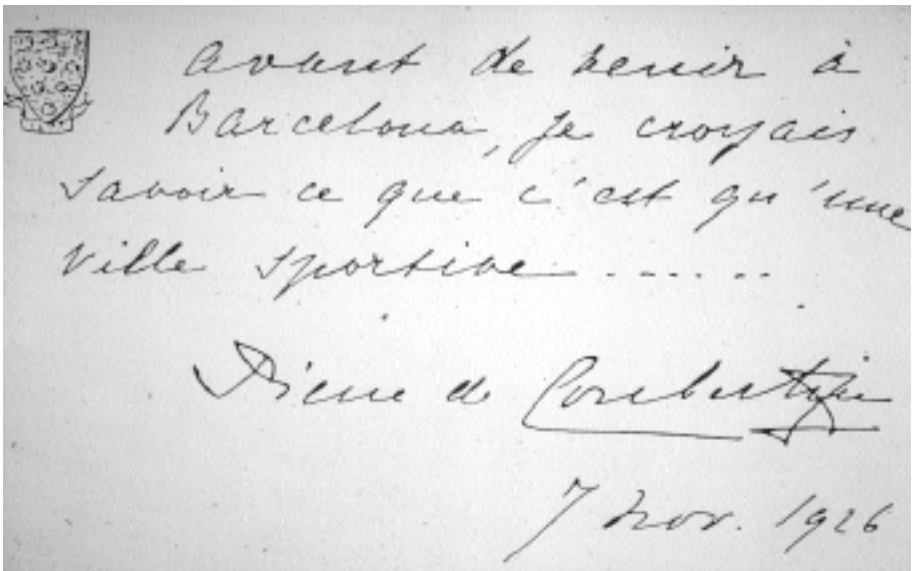 Avant de venir à
Barcelona, je croyais
savoir ce que c'est qu'une
ville sportive ......
Pierre de Coubertin
7 nov. 1926